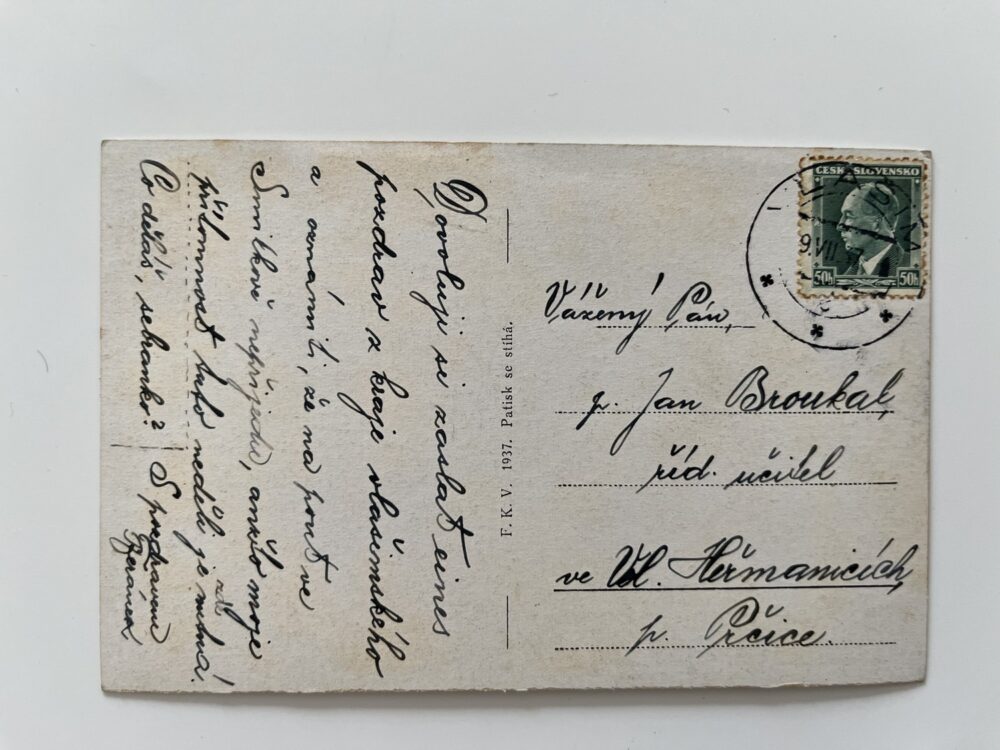 Dovoluji si zaslat
pozdrav z kraje vlašimského
a oznámiti, že na pouť ve
Smilkově nepřijedu, anžto moje
přítomnost tuto neděli je zde nutná!
Co děláš, sebranko? S pozdravem
Beránek
F. K. V. 1937. Patisk se stíhá.
ČESKOSLOVENSKO
50h 50h
VLAŠIM
9.VII.
Vážený Pán,
p. Jan Broukal,
říd. učitel
ve Vel. Heřmanicích,
p. Prčice.